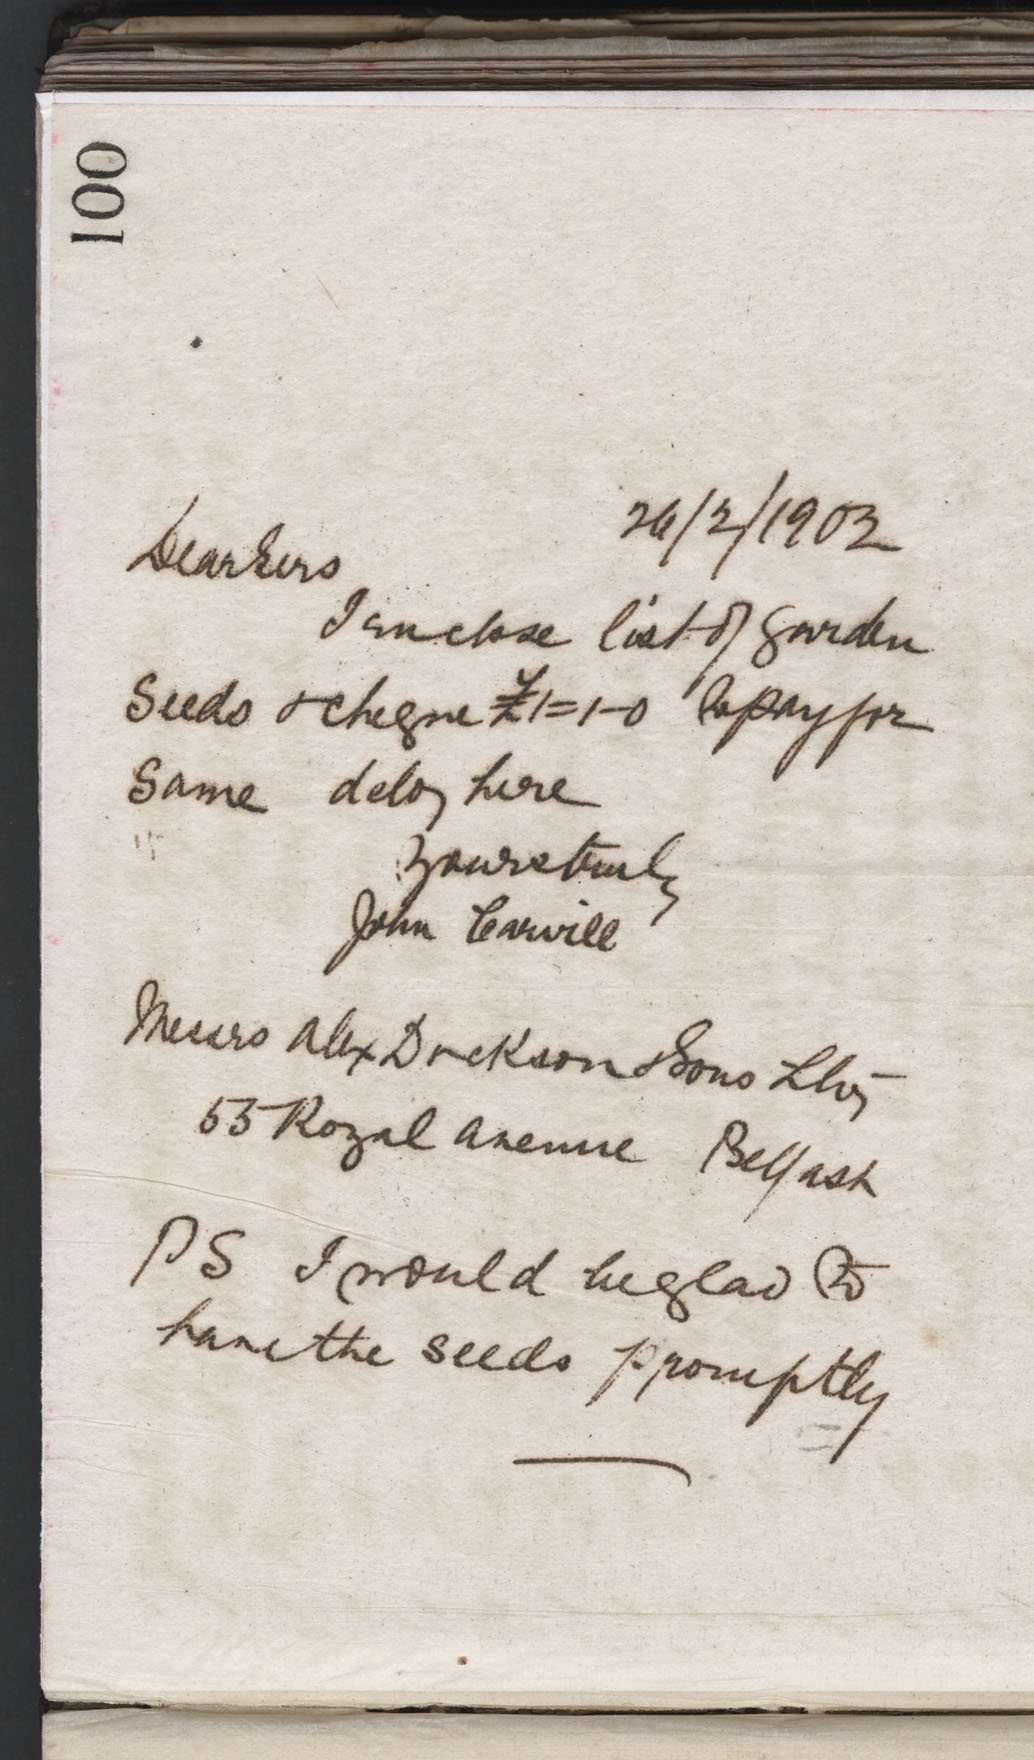 100
26/2/1902
Dear Sirs
I enclose list of garden
Seeds & cheque £1=1-0 to pay for
Same deloy here
Yours truly
John Carvill
Messrs Alex Dickson & Sons
55 Royal Avenue Belfast
PS I would be glad to
have the seeds promptly